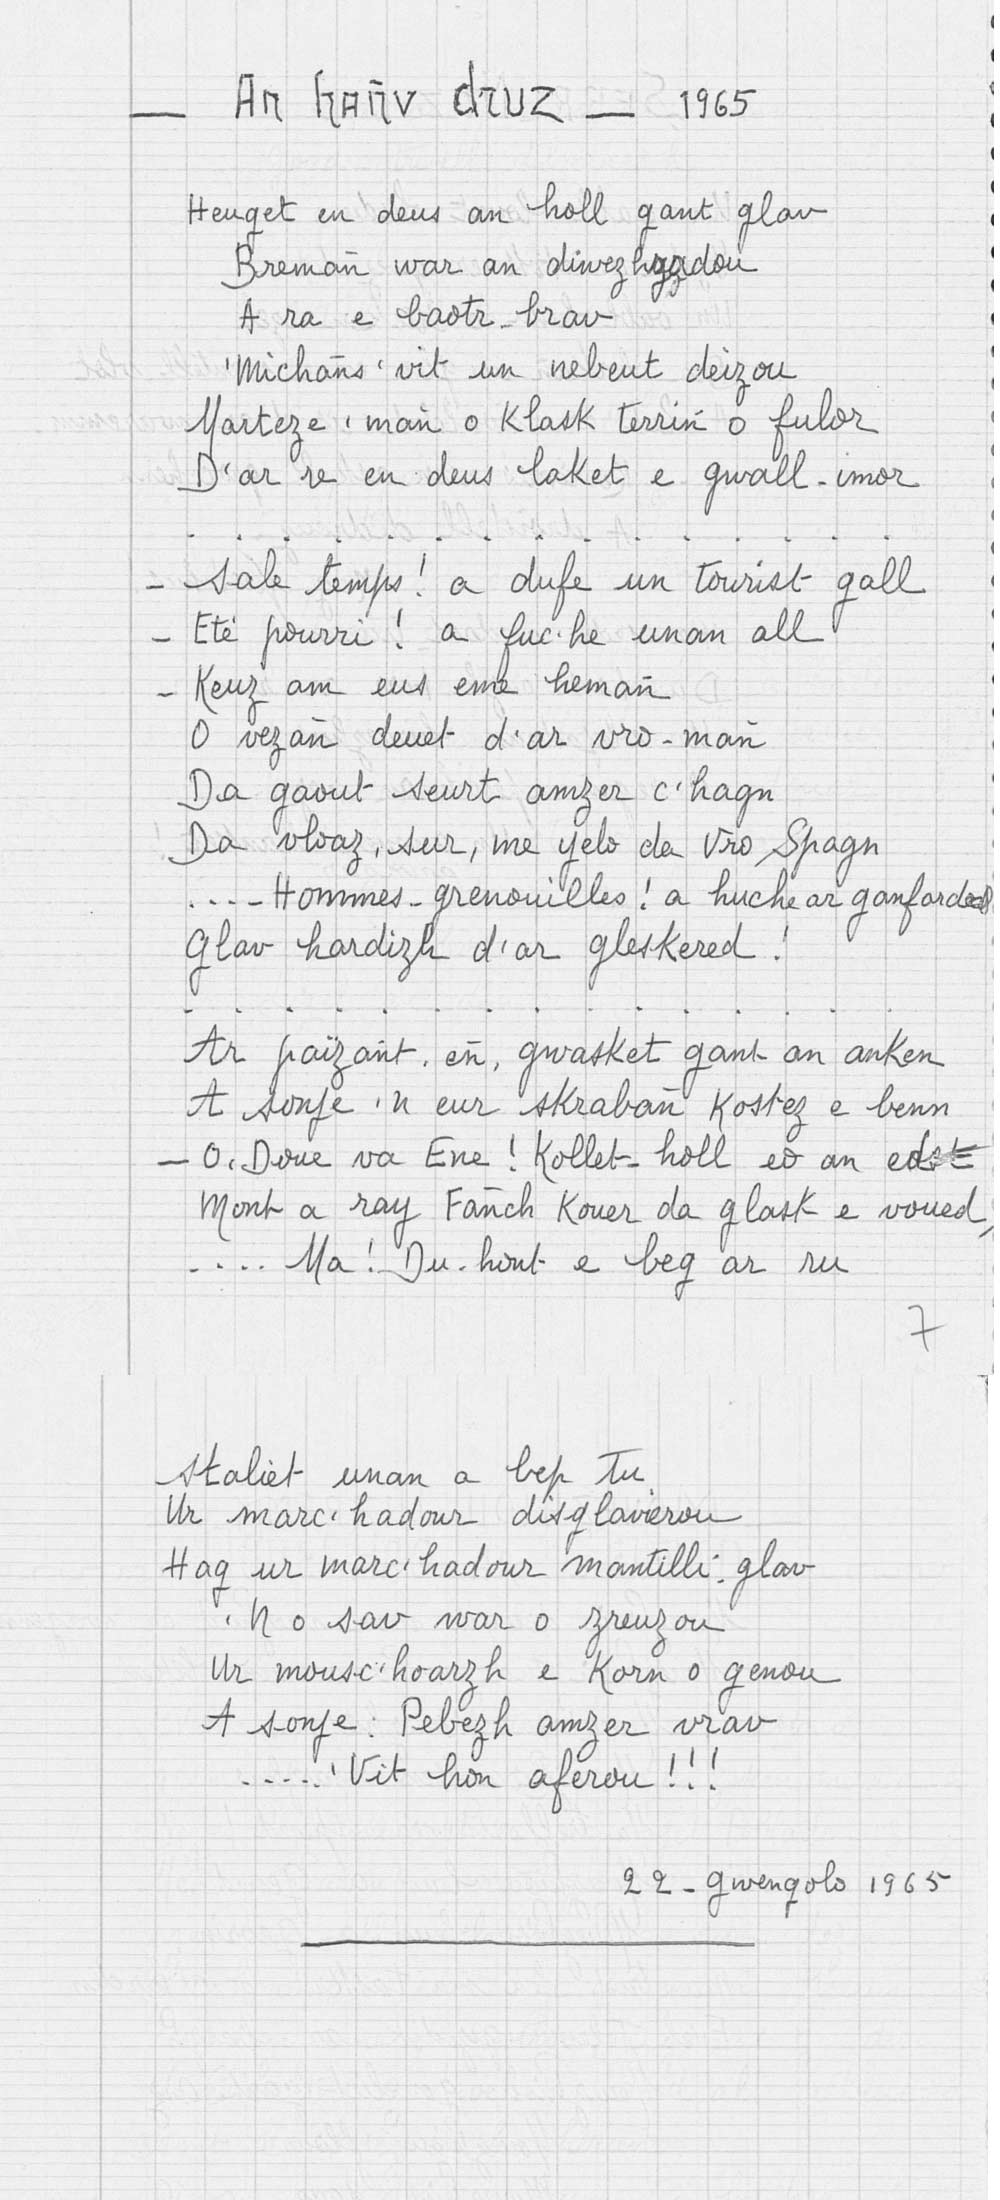 — An hañv druz — 1965
Heuget en deus an holl gant glav
Bremañ war an diwezhadou
A ra e baotr-brav
'Michañs 'vit un nebeut deizou
Marteze 'mañ o klask terriñ o fulor
D'ar re en deus laket e gwall-imor
. . . . . . . . . . . . . . .
- Sale temps! a dufe un tourist gall
- Eté pourri! a fuc'he unan all
- Keuz am eus eme hemañ
O vezañ deuet d'ar vro-mañ
Da gaout seurt amzer c'hagn
Da vloaz, sur, me yelo da Vro Spagn
....- Hommes-grenouilles! a huche ar ganfarded
Glav hardizh d'ar gleskered!
. . . . . . . . . . . . . . .
Ar païzant, eñ, gwasket gant an anken
A sonje 'n eur skrabañ kostez e benn
- O, Doue va Ene! Kollet-holl eo an edst
Mont a ray Fañch Kouer da glask e voued,
.... Ma! Du-hont e beg ar ru
7
Staliet unan a bep tu
Ur marc'hadour disglavierou
Hag ur marc'hadour mantilli-glav
'N o sav war o zreuzou
Ur mousc'hoarzh e korn o genou
A sonje: Pebezh amzer vrav
..... 'Vit hon aferou!!!
22 - Gwengolo 1965